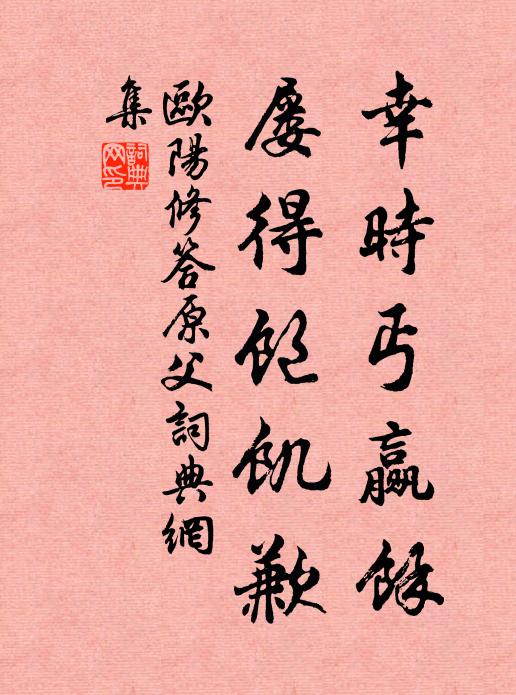 幸時丐贏餘
屢得飽飢歉
歐陽修答原父詞典網
集
詞典网印